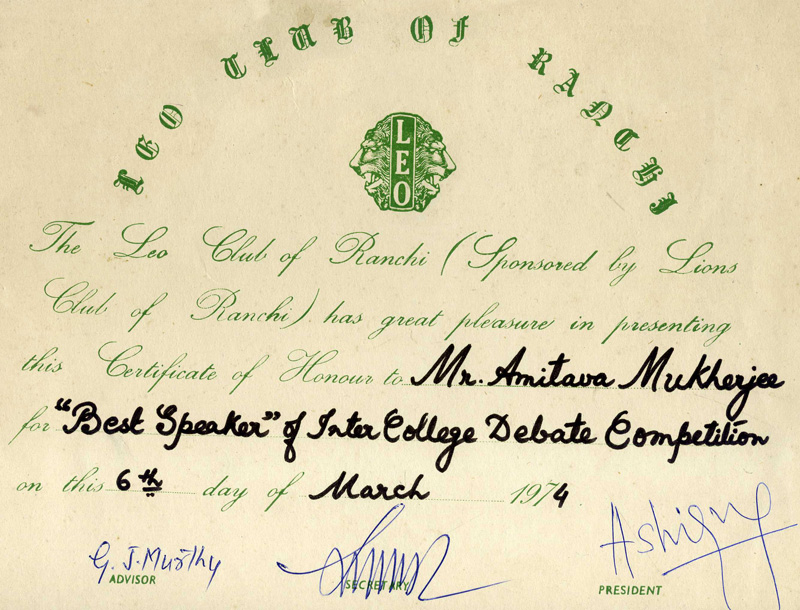 LEO CLUB OF RANCHI
LEO
The Leo Club of Ranchi (Sponsored by Lions
Club of Ranchi) has great pleasure in presenting
this Certificate of Honour to Mr. Amitava Mukherjee
for "Best Speaker" of Inter College Debate Competition
on this 6th day of March 1974
G. J. Murthy
ADVISOR SECRETARY PRESIDENT